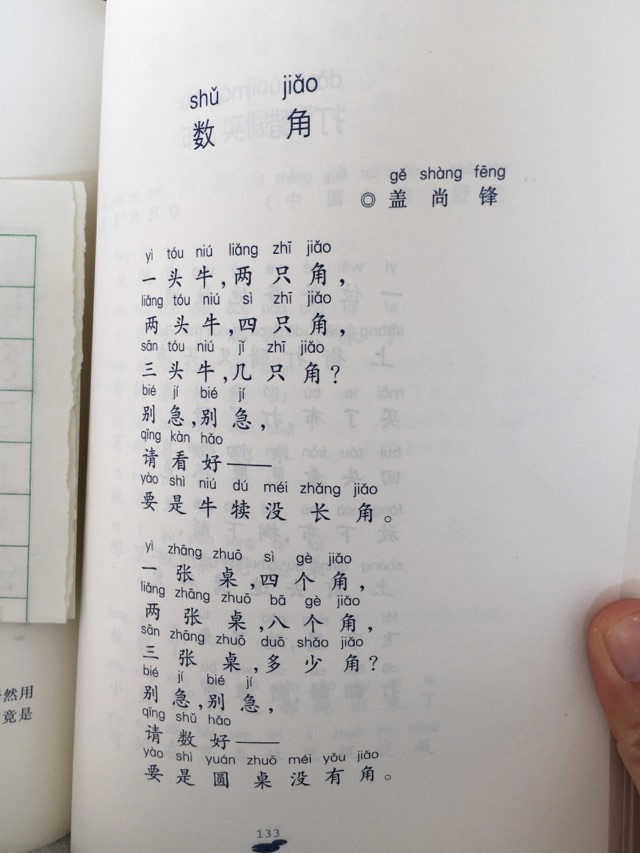 shǔ jiǎo
数角
gě shàng fēng
◎盖尚锋
yì tóu niú liǎng zhī jiǎo
一头牛,两只角,
liǎng tóu niú sì zhī jiǎo
两头牛,四只角,
sān tóu niú jǐ zhī jiǎo
三头牛,几只角?
bié jí bié jí
别急,别急,
qǐng kàn hǎo
请看好——
yào shì niú dú méi zhǎng jiǎo
要是牛犊没长角。
yì zhāng zhuō sì gè jiǎo
一张桌,四个角,
liǎng zhāng zhuō bā gè jiǎo
两张桌,八个角,
sān zhāng zhuō duō shǎo jiǎo
三张桌,多少角?
bié jí bié jí
别急,别急,
qǐng shǔ hǎo
请数好——
yào shì yuán zhuō méi yǒu jiǎo
要是圆桌没有角。
133
然用
竟是